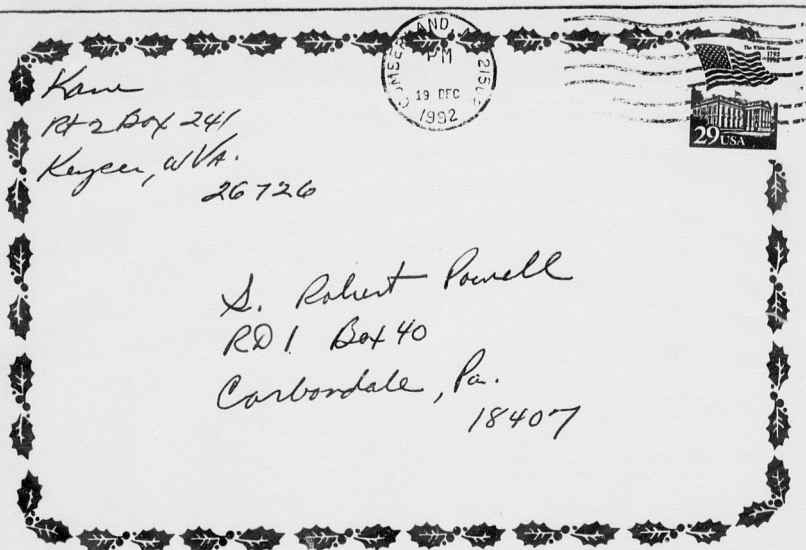 Kane
Rt 2 Box 241
Keyser, WVA.
26726
CUMBERLAND
PM
19 DEC
1992
The White House
1792
1992
29 USA
S. Robert Powell
RD 1 Box 40
Carbondale, Pa.
18407